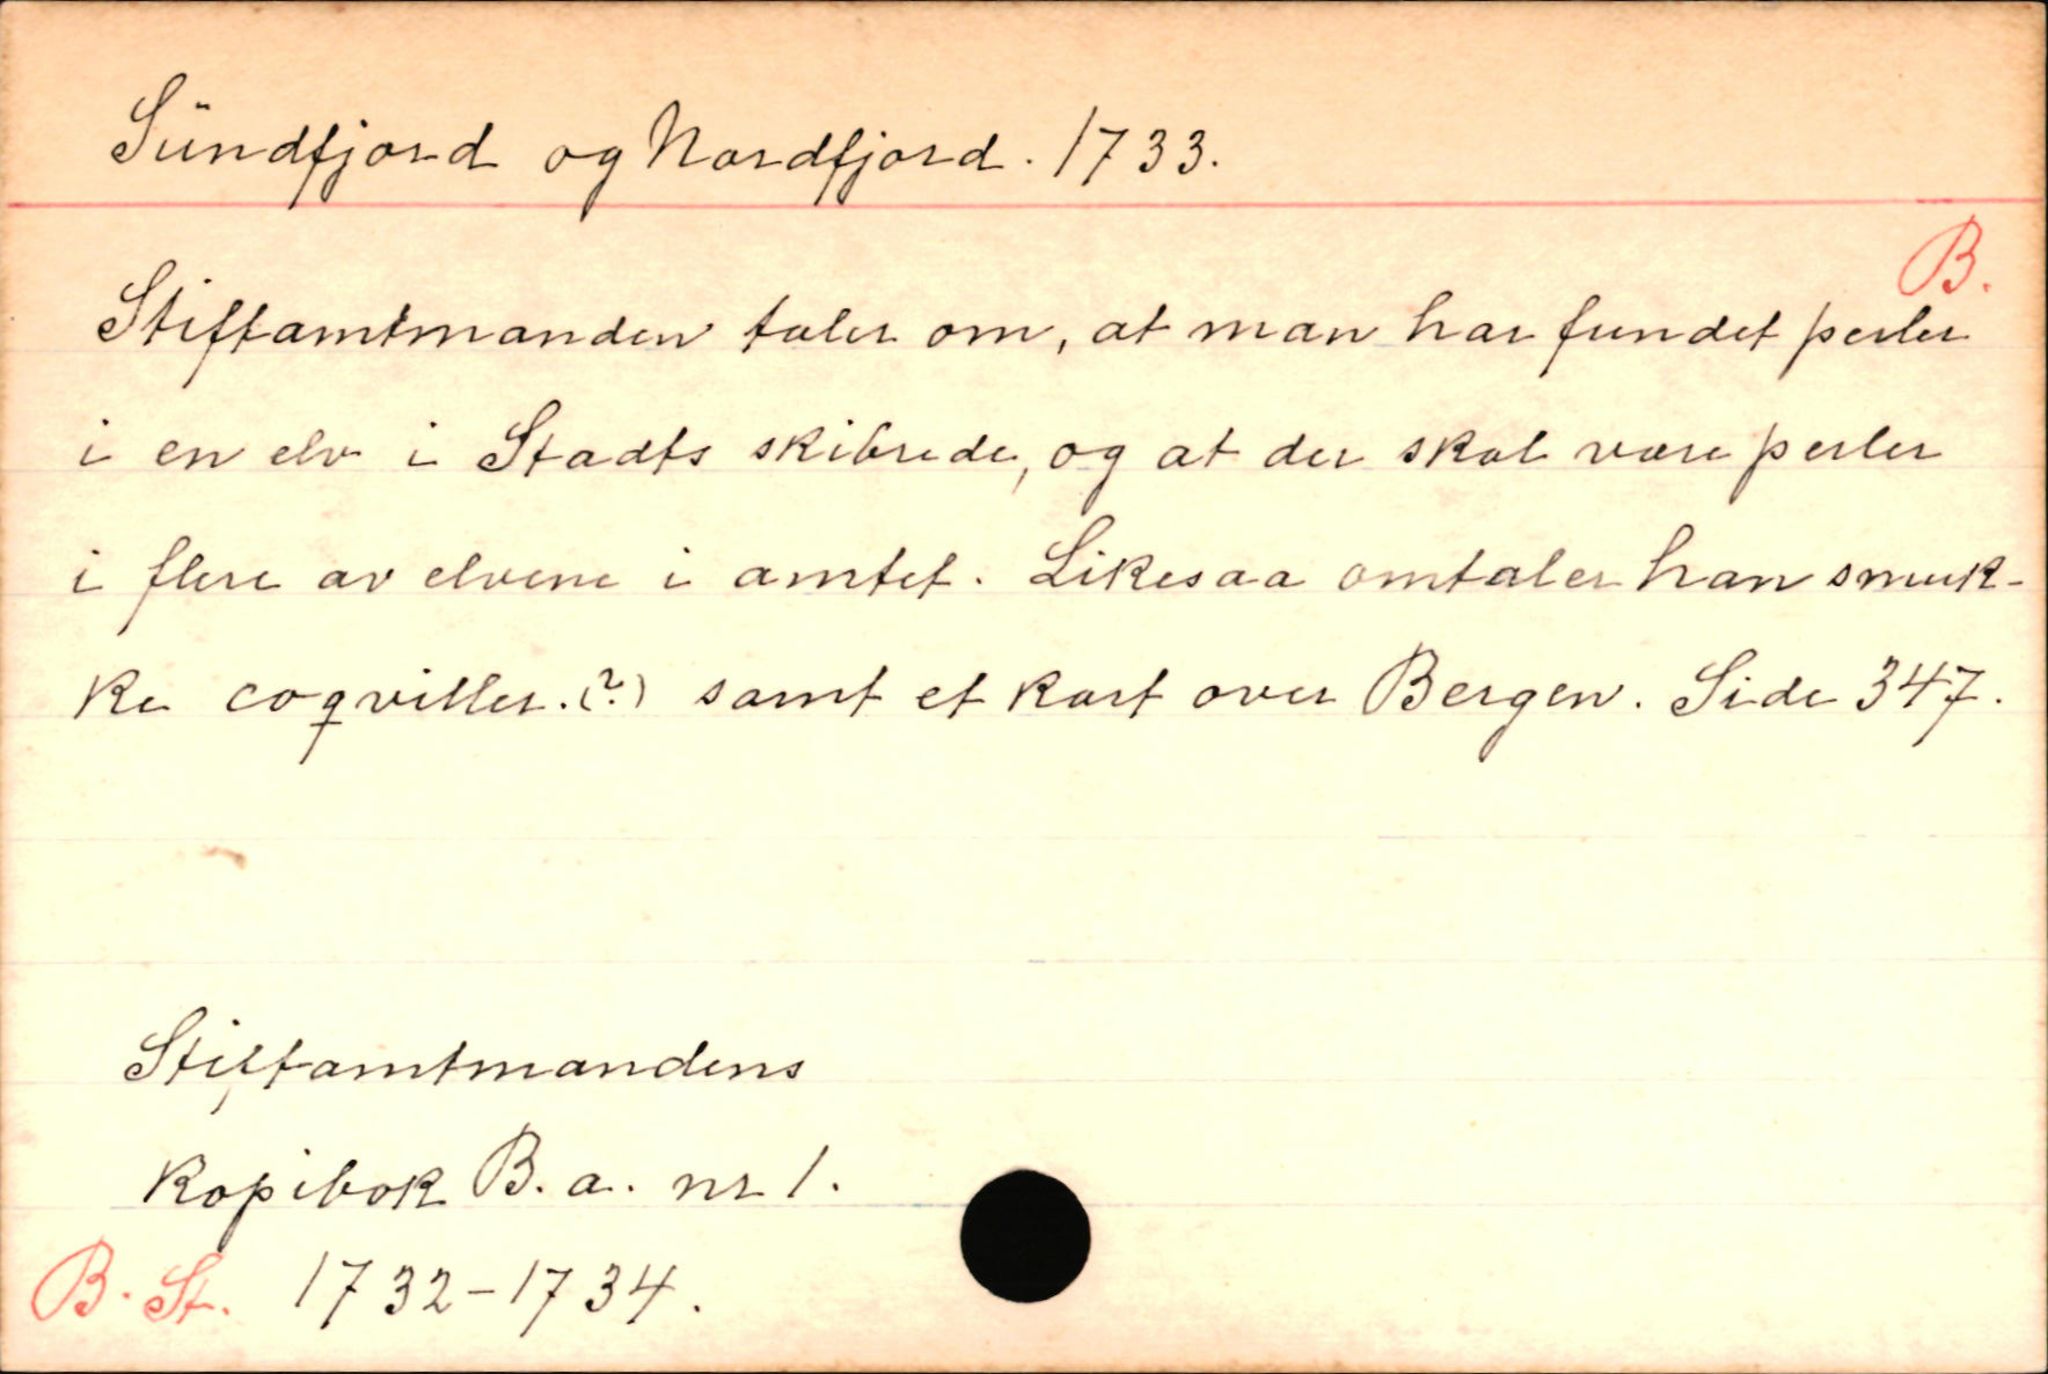 Sündfjord og Nordfjord. 1733.
B.
Stiftamtmanden taler om, at man har fundet perler
i en elv i Stadts skibrede, og at der skal være perler
i flere av elvene i amtet. Likesaa omtaler han smuk-
ke coqviller.(?) samt et kart over Bergen. Side 347.
Stiftamtmandens
Kopibok B. a. nr 1.
B. St. 1732-1734.